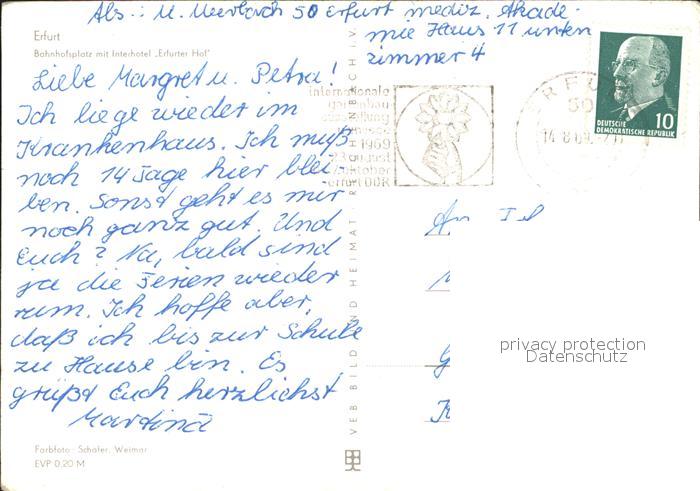 Abs.: M. Meerbach 50 Erfurt mediz. Akade-
mie Haus 11 unten
zimmer 4
Erfurt
Bahnhofsplatz mit Interhotel „Erfurter Hof"
Liebe Margret u. Petra!
Ich liege wieder im
Krankenhaus. Ich muß
noch 14 Tage hier blei-
ben. Sonst geht es mir
noch ganz gut. Und
Euch? Na, bald sind
ja die Ferien wieder
rum. Ich hoffe aber,
daß ich bis zur Schule
zu Hause bin. Es
grüßt Euch herzlichst
Martina
Farbfoto: Schäfer, Weimar
EVP 0,20 M
VEB BILD UND HEIMAT REICHENBACH i. V.
internationale
gartenbau
ausstellung
1969
oktober
erfurt DDR
50
DEUTSCHE
DEMOKRATISCHE REPUBLIK
10
An
privacy protection
Datenschutz